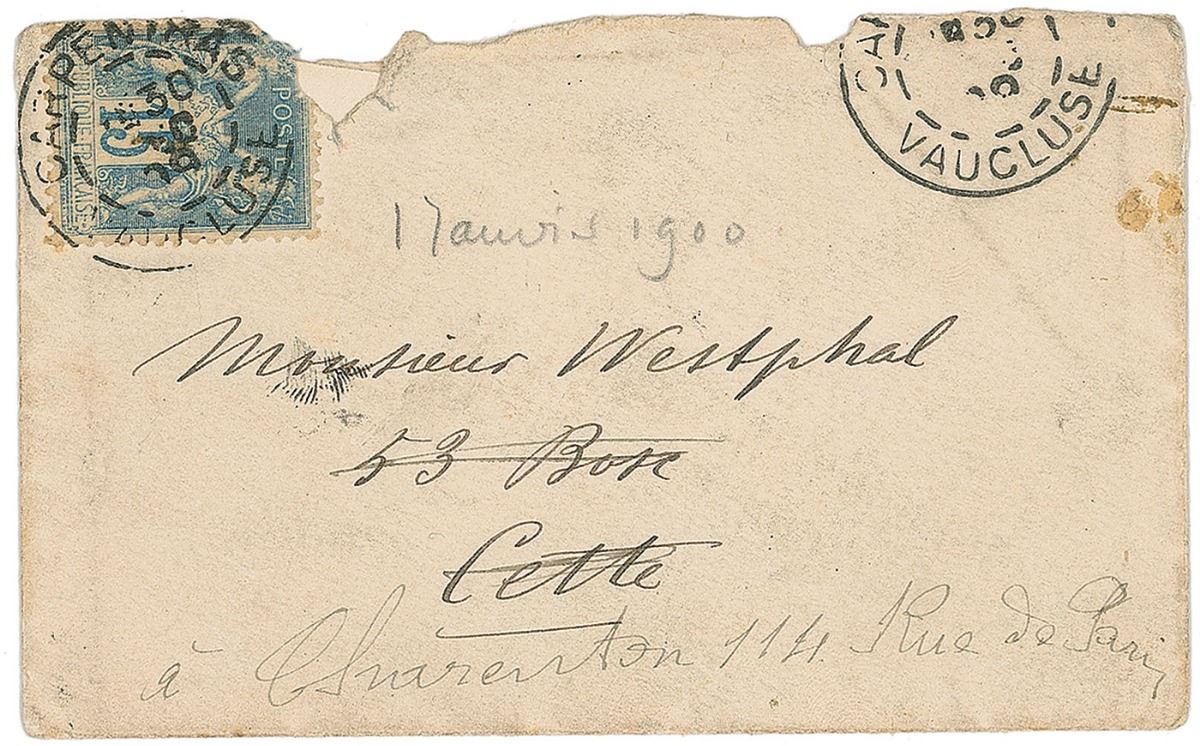 CARPENTRAS
VAUCLUSE
30
POSTE
15
REPUBLIQUE FRANÇAISE
VAUCLUSE
1 Janvier 1900
Monsieur Westphal
53 Bosc
Cette
à Charenton 114 Rue de Paris